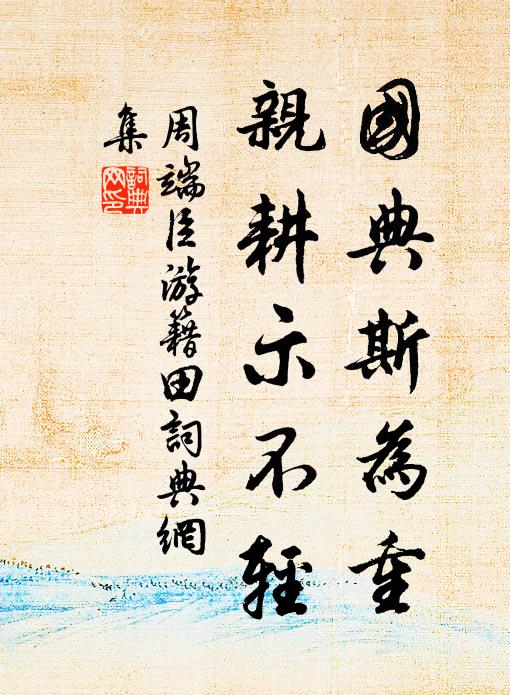 國典斯為重
親耕示不輕
周端臣游籍田詞典網
集
詞典
网印